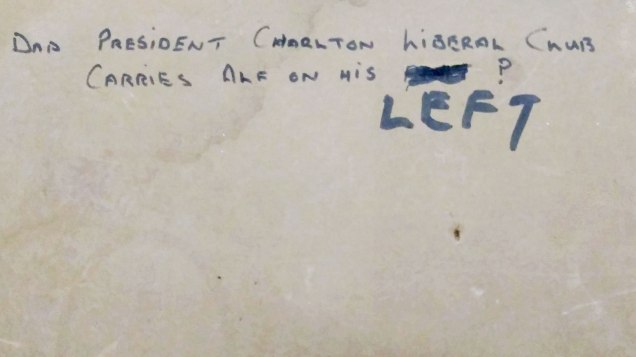 DAD PRESIDENT CHARLTON LIBERAL CLUB
CARRIES ALF ON HIS ?
LEFT